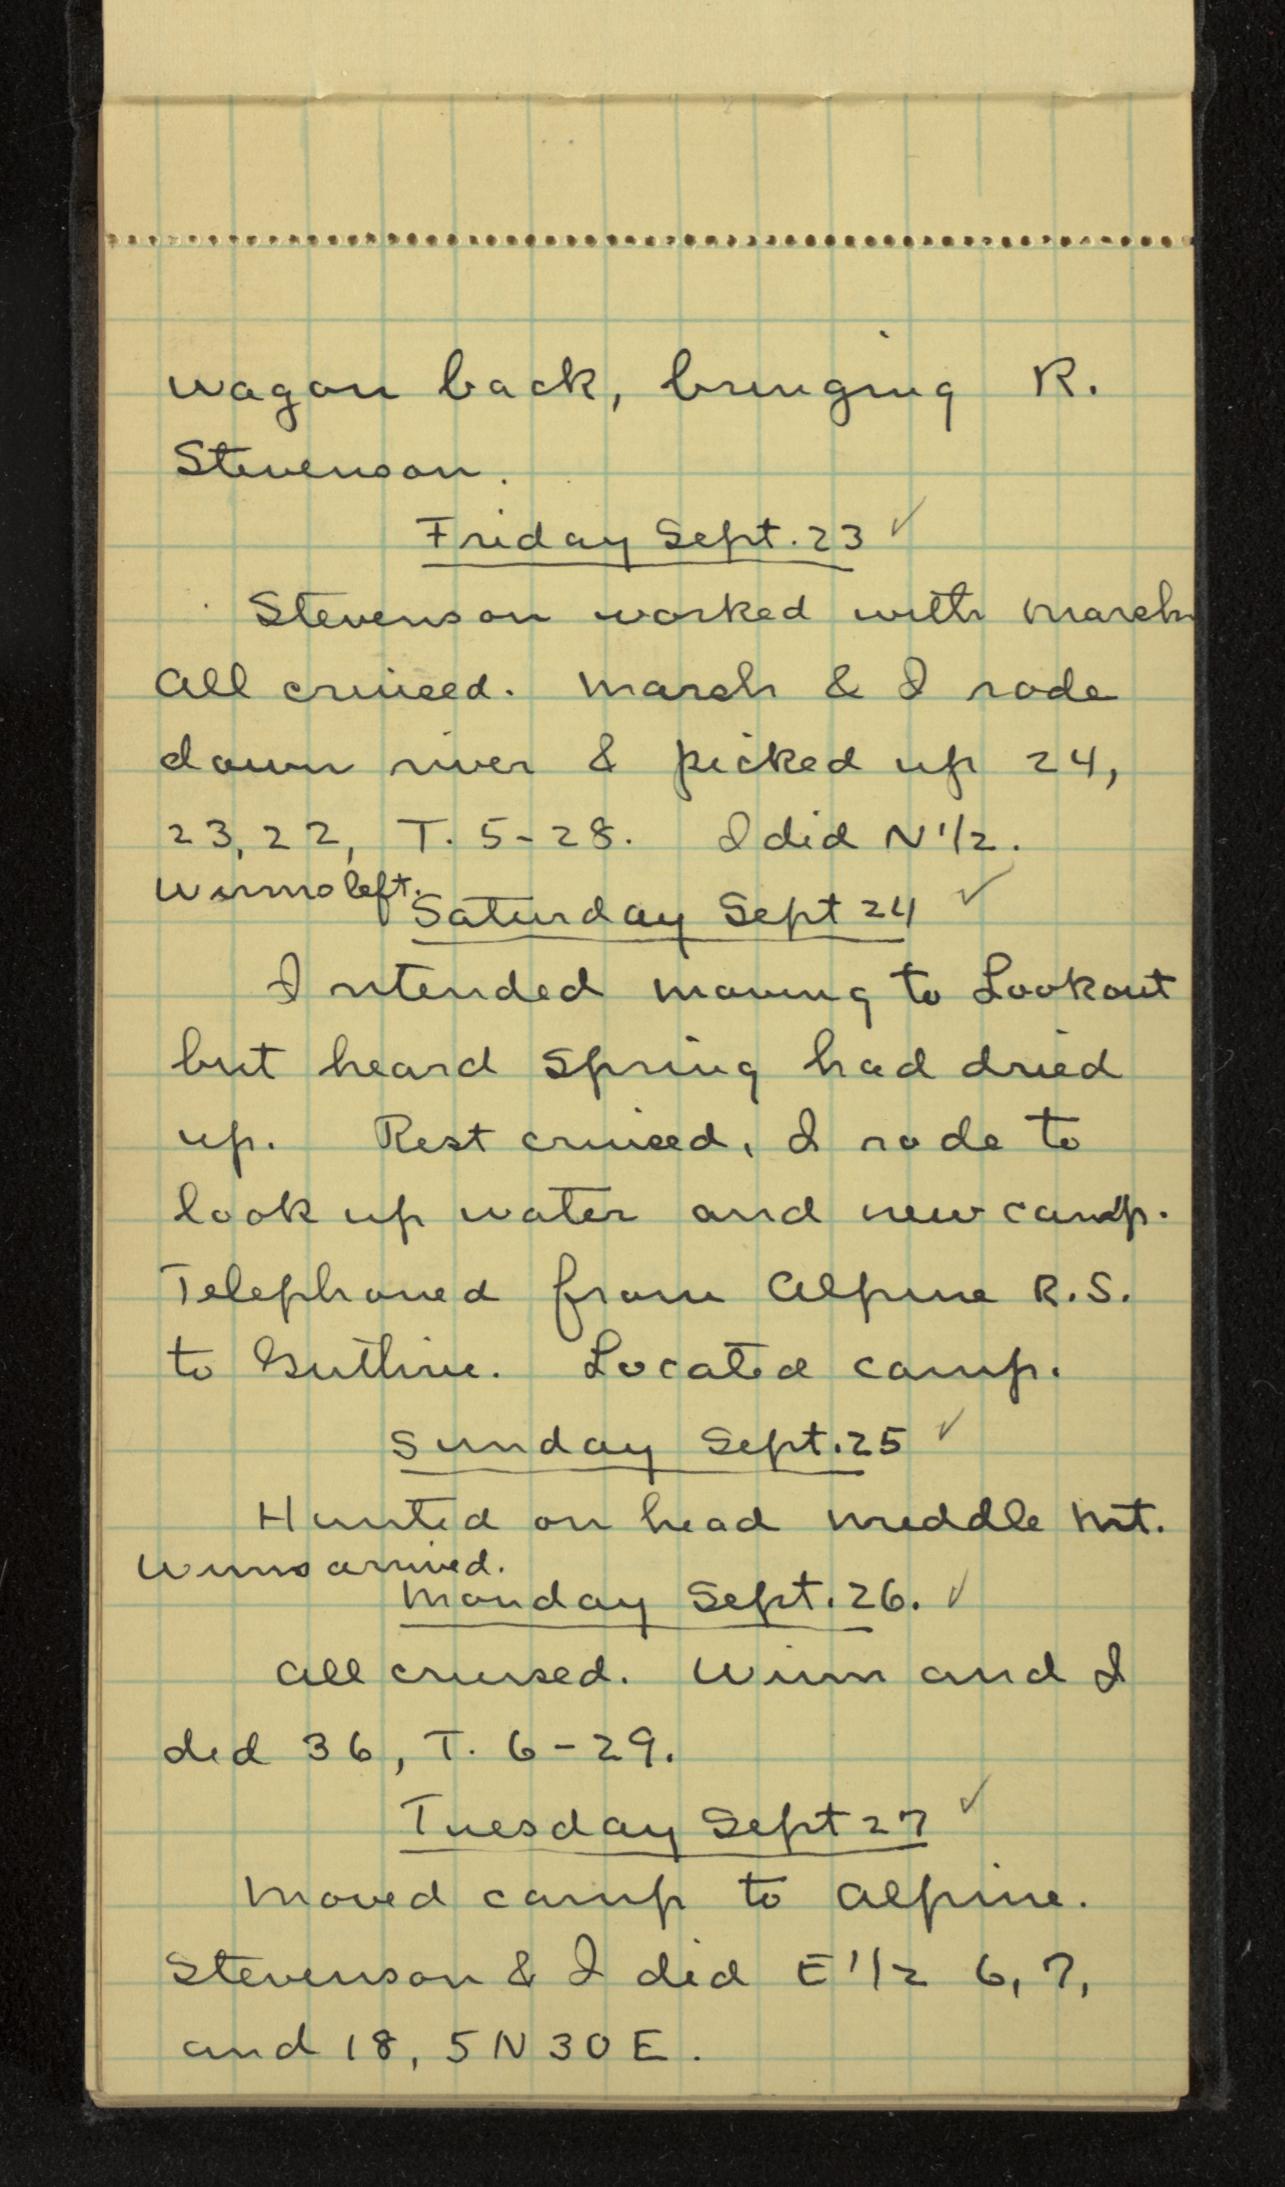 wagon back, bringing R.
Stevenson.
Friday Sept. 23 ✓
Stevenson worked with March
All cruised. March & I rode
down river & picked up 24,
23, 22, T. 5-28. I did N 1/2.
Winns left.
Saturday Sept 24 ✓
Intended moving to Lookout
but heard spring had dried
up. Rest cruised, I rode to
look up water and new camp.
Telephoned from Alpine R.S.
to Guthrie. Located camp.
Sunday Sept. 25 ✓
Hunted on head middle Mt.
Winns arrived.
Monday Sept. 26. ✓
All cruised. Winn and I
did 36, T. 6-29.
Tuesday Sept 27 ✓
Moved camp to Alpine.
Stevenson & I did E 1/2 6, 7,
and 18, 5 N 30 E.